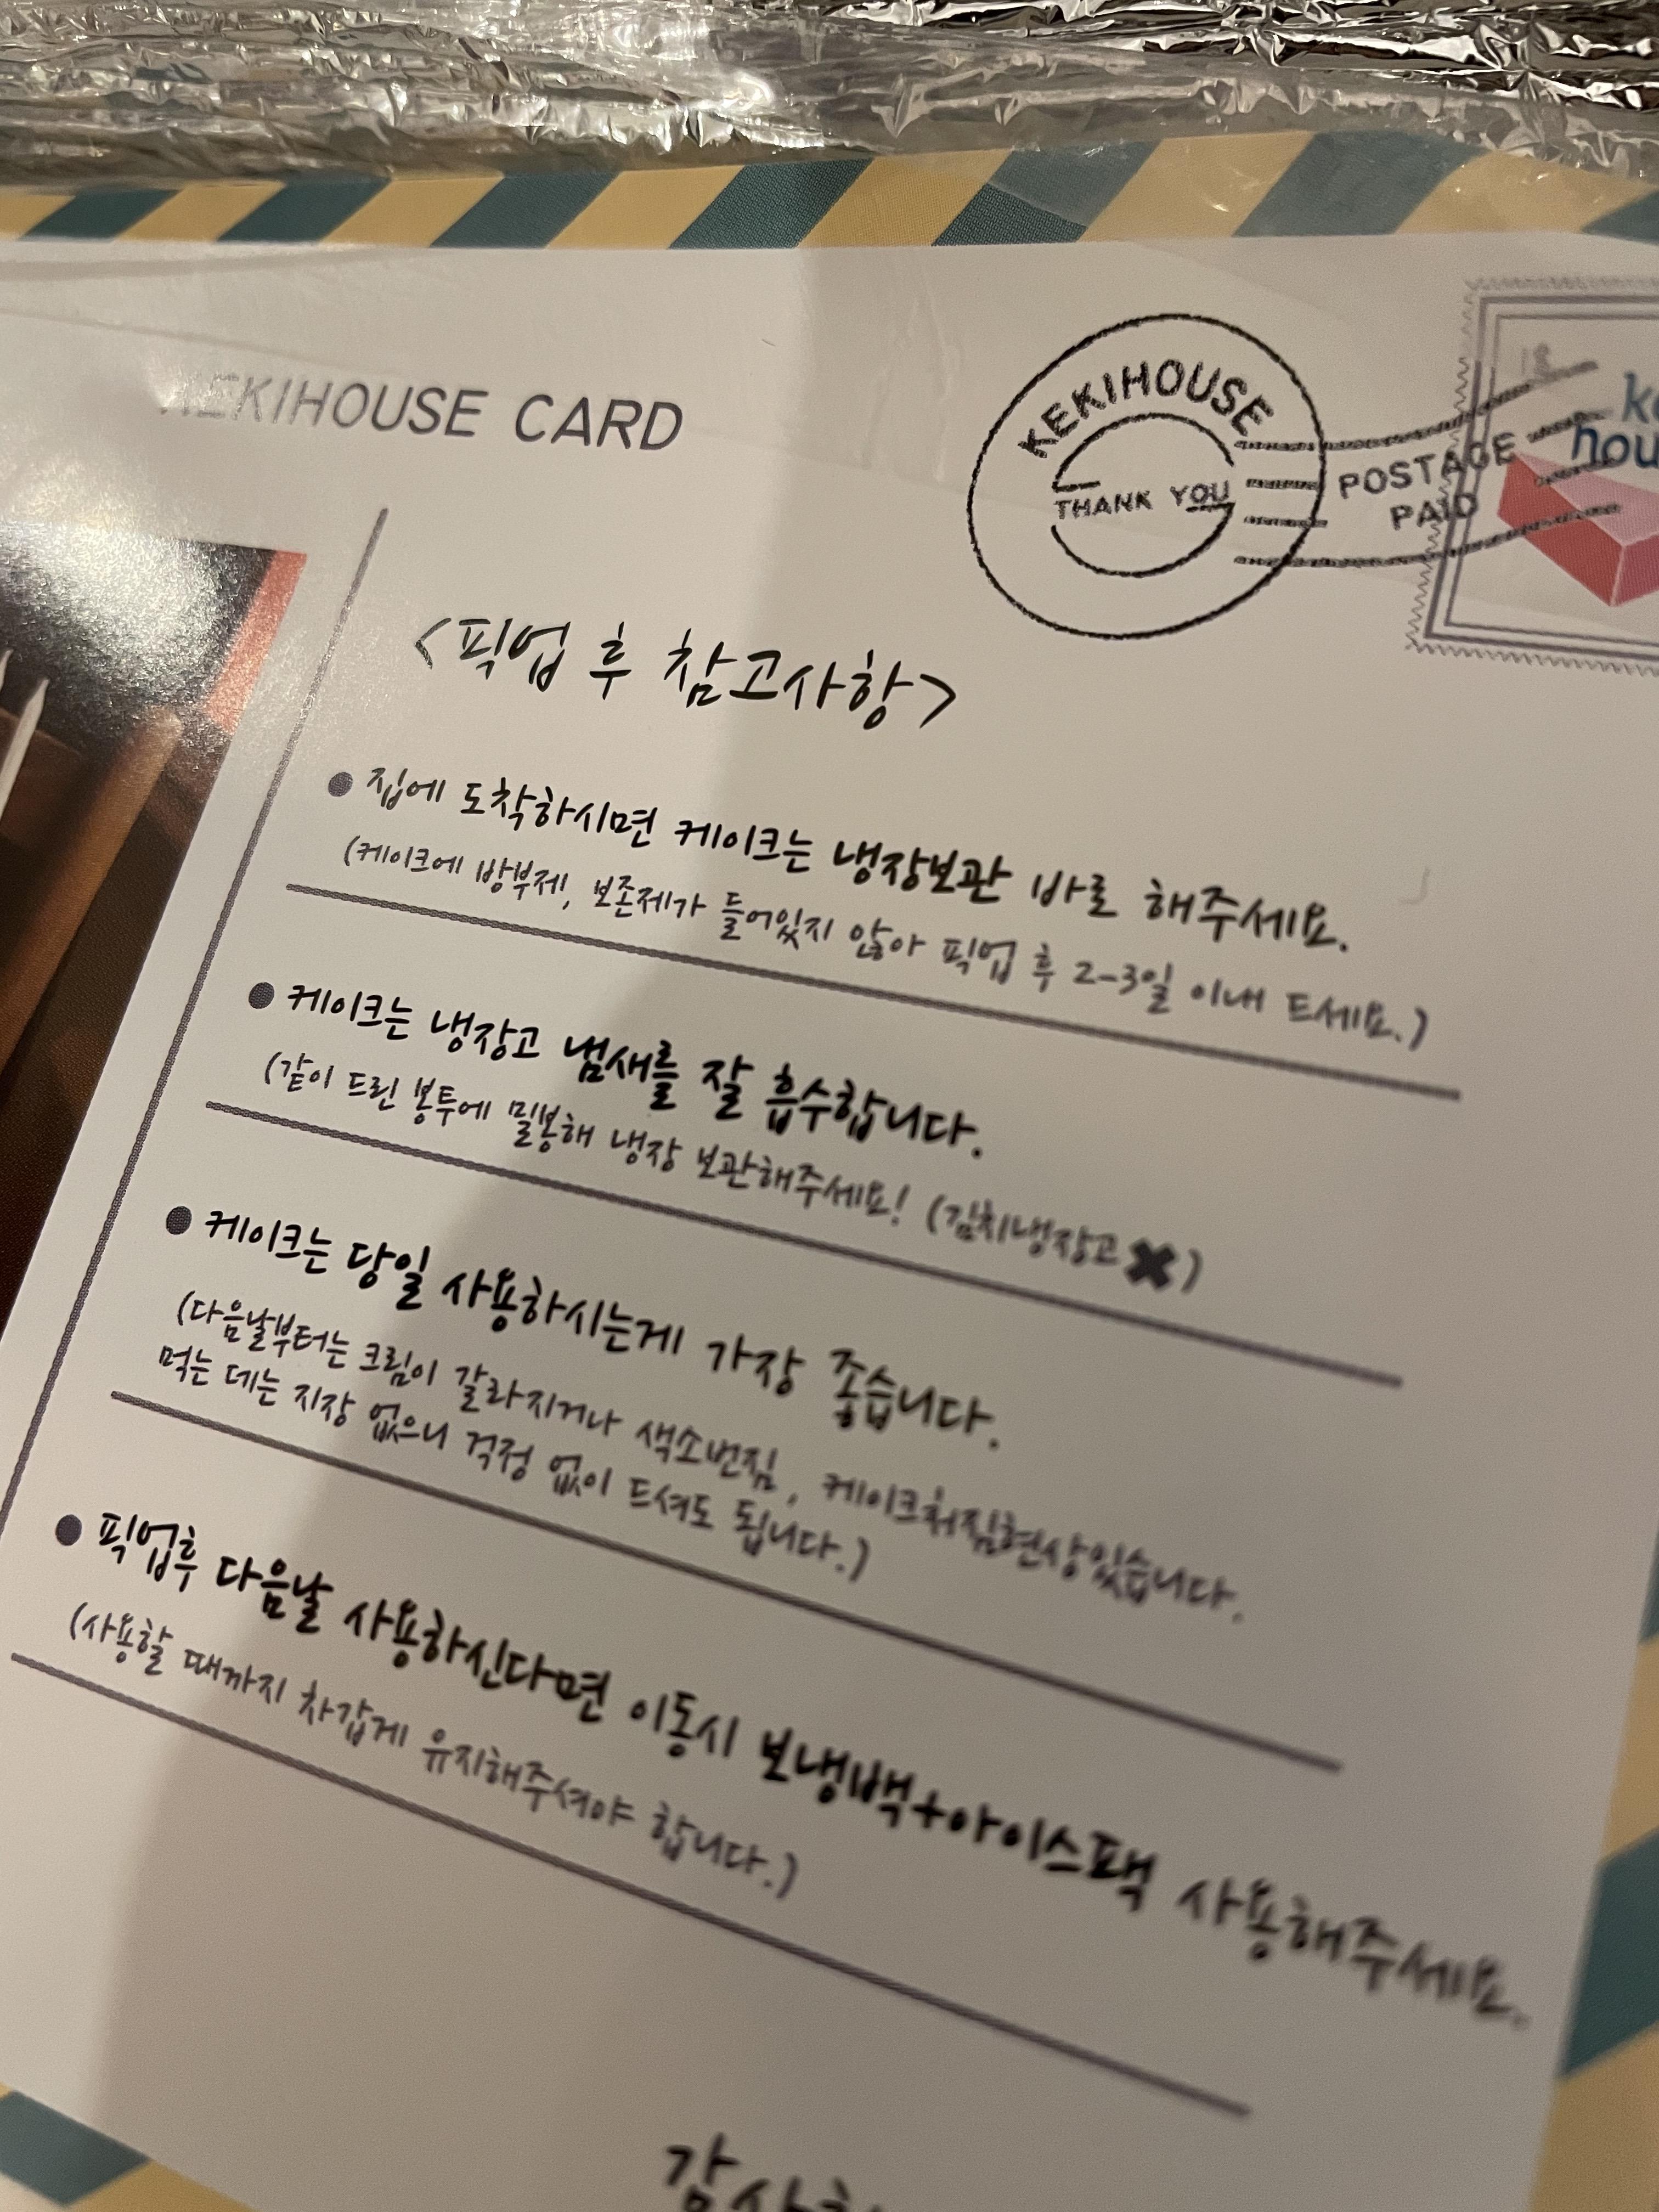 KEKIHOUSE CARD
KEKIHOUSE
THANK YOU
POSTAGE
PAID
<픽업 후 참고사항>
● 집에 도착하시면 케이크는 냉장보관 바로 해주세요.
(케이크에 방부제, 보존제가 들어있지 않아 픽업 후 2-3일 이내 드세요.)
● 케이크는 냉장고 냄새를 잘 흡수합니다.
(같이 드린 봉투에 밀봉해 냉장 보관해주세요! (김치냉장고✖)
● 케이크는 당일 사용하시는게 가장 좋습니다.
(다음날부터는 크림이 갈라지거나 색소번짐, 케이크처짐현상있습니다.
먹는 데는 지장 없으니 걱정 없이 드셔도 됩니다.)
● 픽업후 다음날 사용하신다면 이동시 보냉백+아이스팩 사용해주세요.
(사용할 때까지 차갑게 유지해주셔야 합니다.)